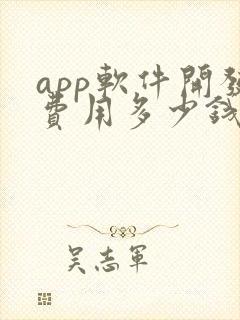 app軟件開發
費用多少錢
吴志軍